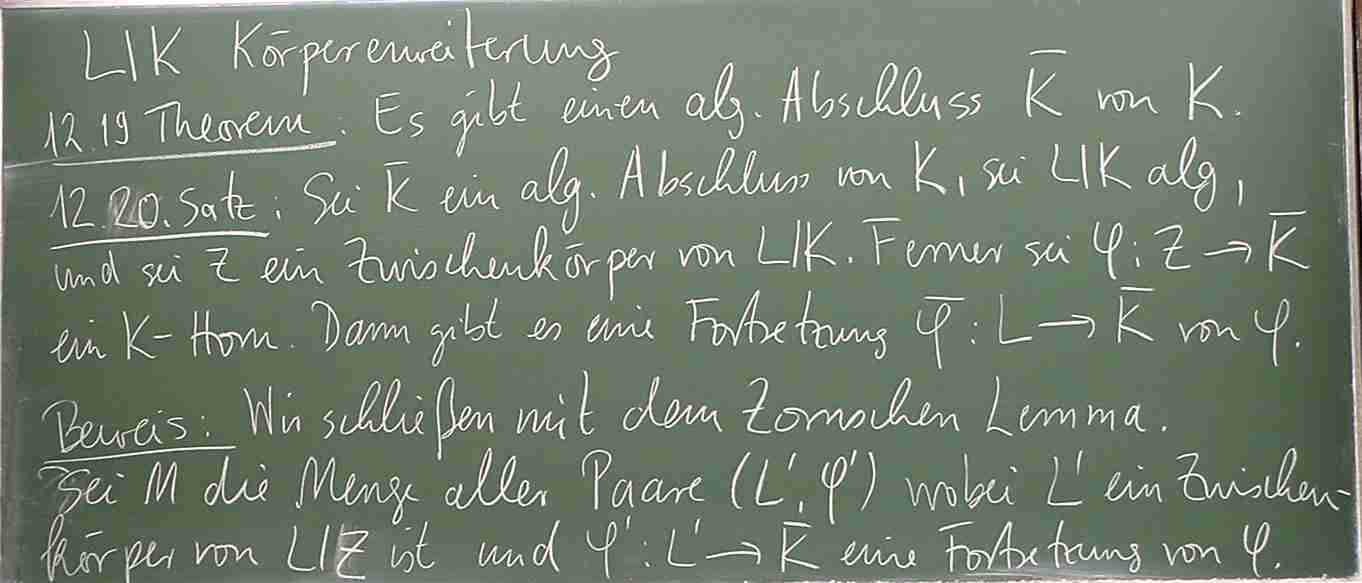 L|K Körpererweiterung
12.19 Theorem: Es gibt einen alg. Abschluss K̄ von K.
12.20. Satz: Sei K̄ ein alg. Abschluss von K, sei L|K alg,
und sei Z ein Zwischenkörper von L|K. Ferner sei φ: Z → K̄
ein K-Hom. Dann gibt es eine Fortsetzung φ̄: L → K̄ von φ.
Beweis: Wir schließen mit dem Zornschen Lemma.
Sei M die Menge aller Paare (L', φ') wobei L' ein Zwischen-
körper von L|Z ist und φ': L' → K̄ eine Fortsetzung von φ.